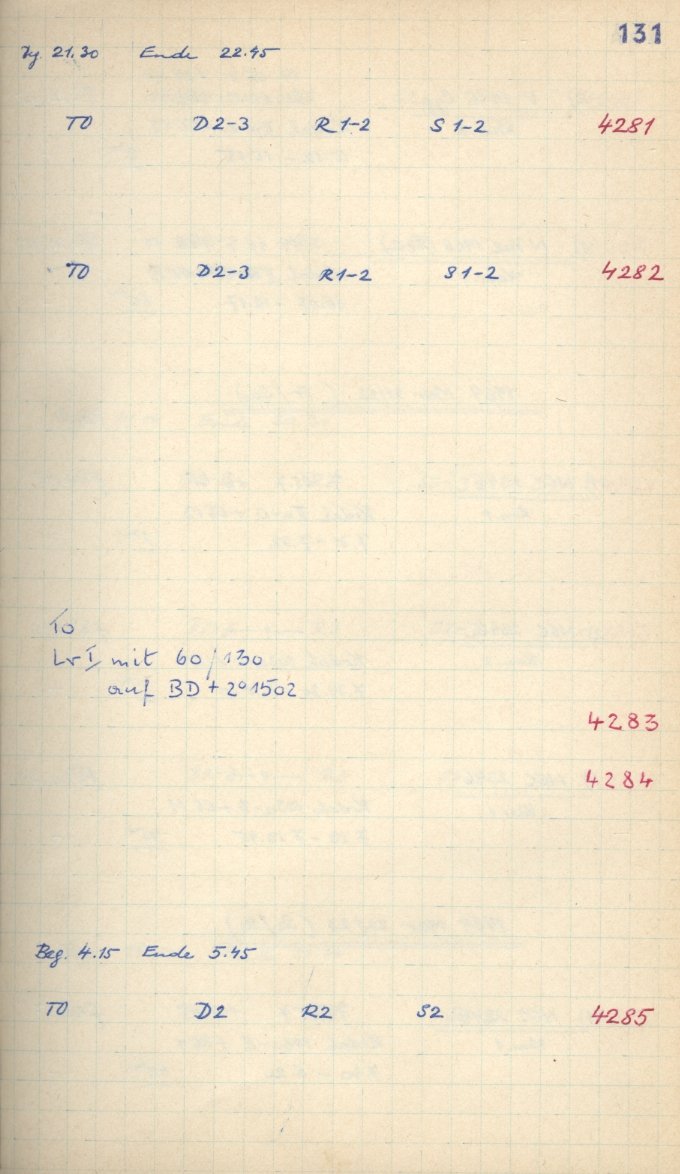 131
21.30 Ende 22.45
TO D2-3 R1-2 S1-2 4281
TO D2-3 R1-2 S1-2 4282
TO
Lv I mit 60/130
auf BD+2°1502
4283
4284
Beg. 4.15 Ende 5.45
TO D2 R2 S2 4285